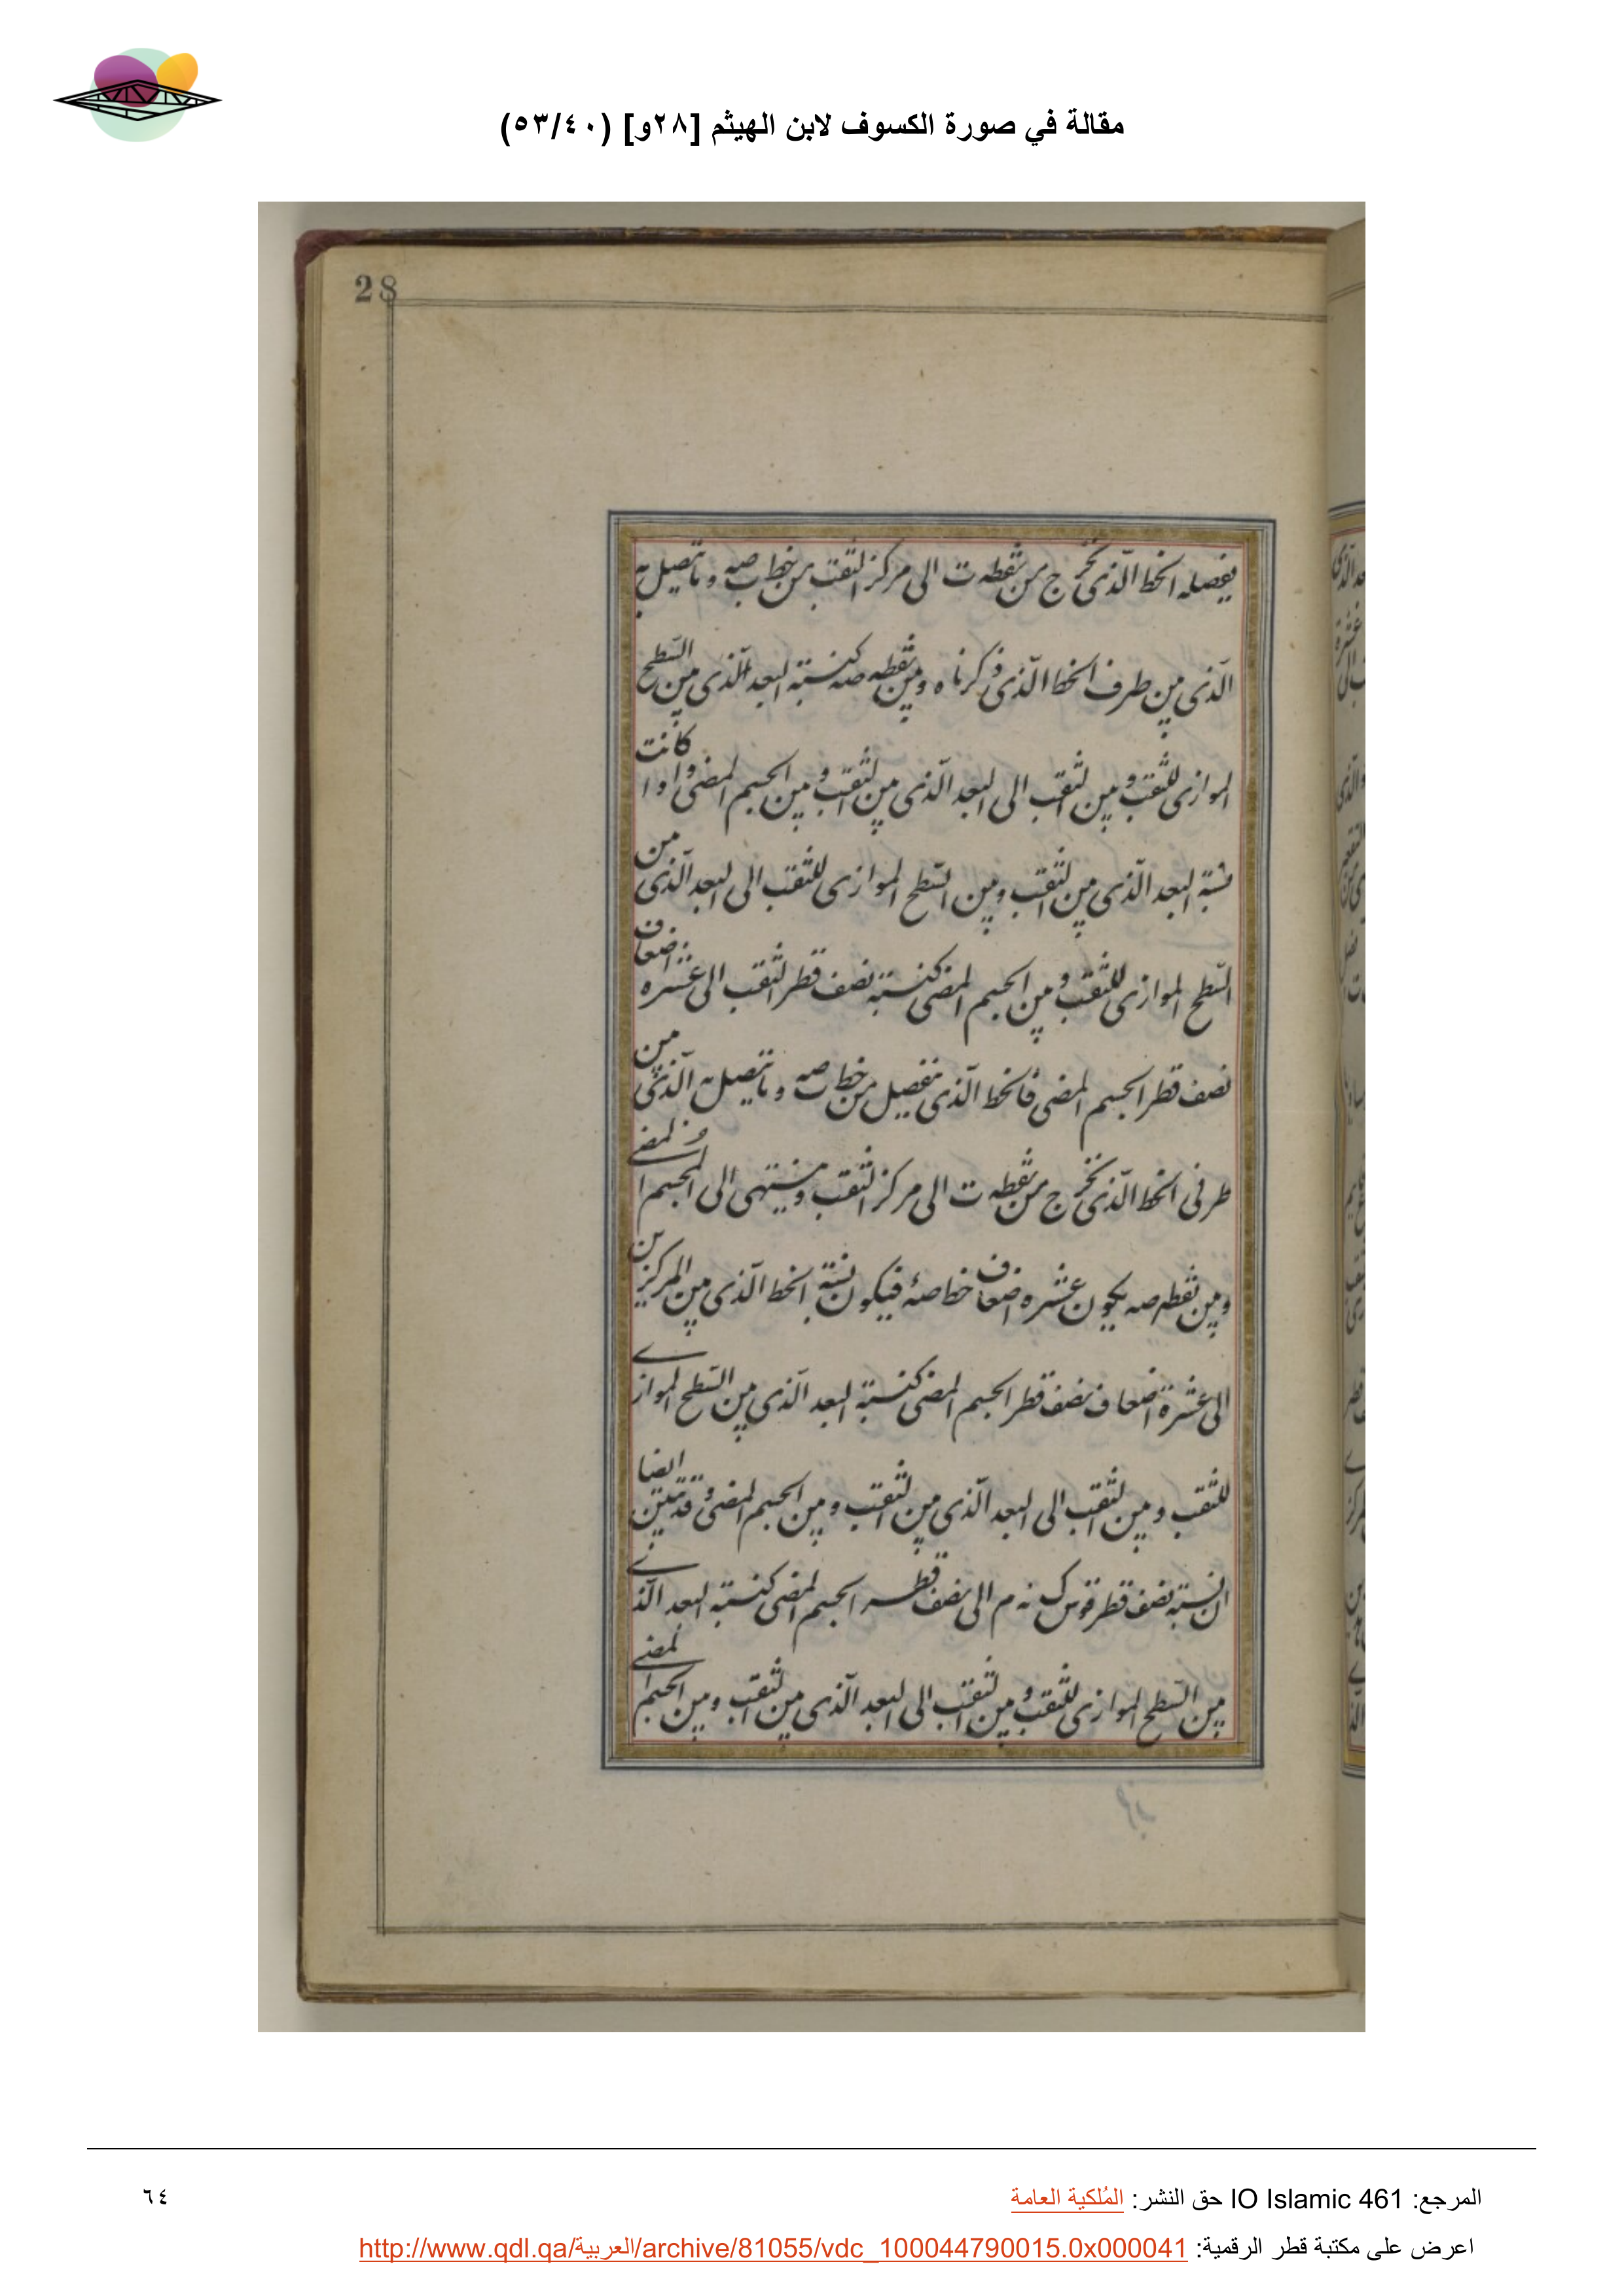 مقالة في صورة الكسوف لابن الهيثم [٢٨و] (٥٣/٤٠)
28
يفصله الخط الّذى يخرج من نقطه ت الى مركز الثقب من خط ب صه وما يتصل به
الّذى بين طرف الخط الّذى ذكرناه وبين نقطه صه كنسبة البعد الّذى بين السّطح
الموازى للثقب وبين الثقب الى البعد الّذى بين الثقب وبين الجسم المضى واذا كانت
نسبة البعد الّذى بين الثقب وبين السّطح الموازى للثقب الى البعد الّذى بين
السّطح الموازى للثقب وبين الجسم المضى كنسبة نصف قطر الثقب الى عشره اضعاف
نصف قطر الجسم المضى فالخط الّذى ينفصل من خط ب صه وما يتصل به الّذى بين
طرفى الخط الّذى يخرج من نقطه ت الى مركز الثقب وينتهى الى الجسم المضى
وبين نقطه صه يكون عشره اضعاف خط صه فيكون نسبة الخط الّذى بين المركزين
الى عشرة اضعاف نصف قطر الجسم المضى كنسبة البعد الّذى بين السّطح الموازى
للثقب وبين الثقب الى البعد الّذى بين الثقب وبين الجسم المضى وقد تبين ايضا
ان نسبة نصف قطر قوس ك نه م الى نصف قطر الجسم المضى كنسبة البعد الّذى
بين السّطح الموازى للثقب وبين الثقب الى البعد الّذى بين الثقب وبين الجسم المضى
المرجع: IO Islamic 461 حق النشر: المُلكية العامة
٦٤
اعرض على مكتبة قطر الرقمية: http://www.qdl.qa/العربية/archive/81055/vdc_100044790015.0x000041